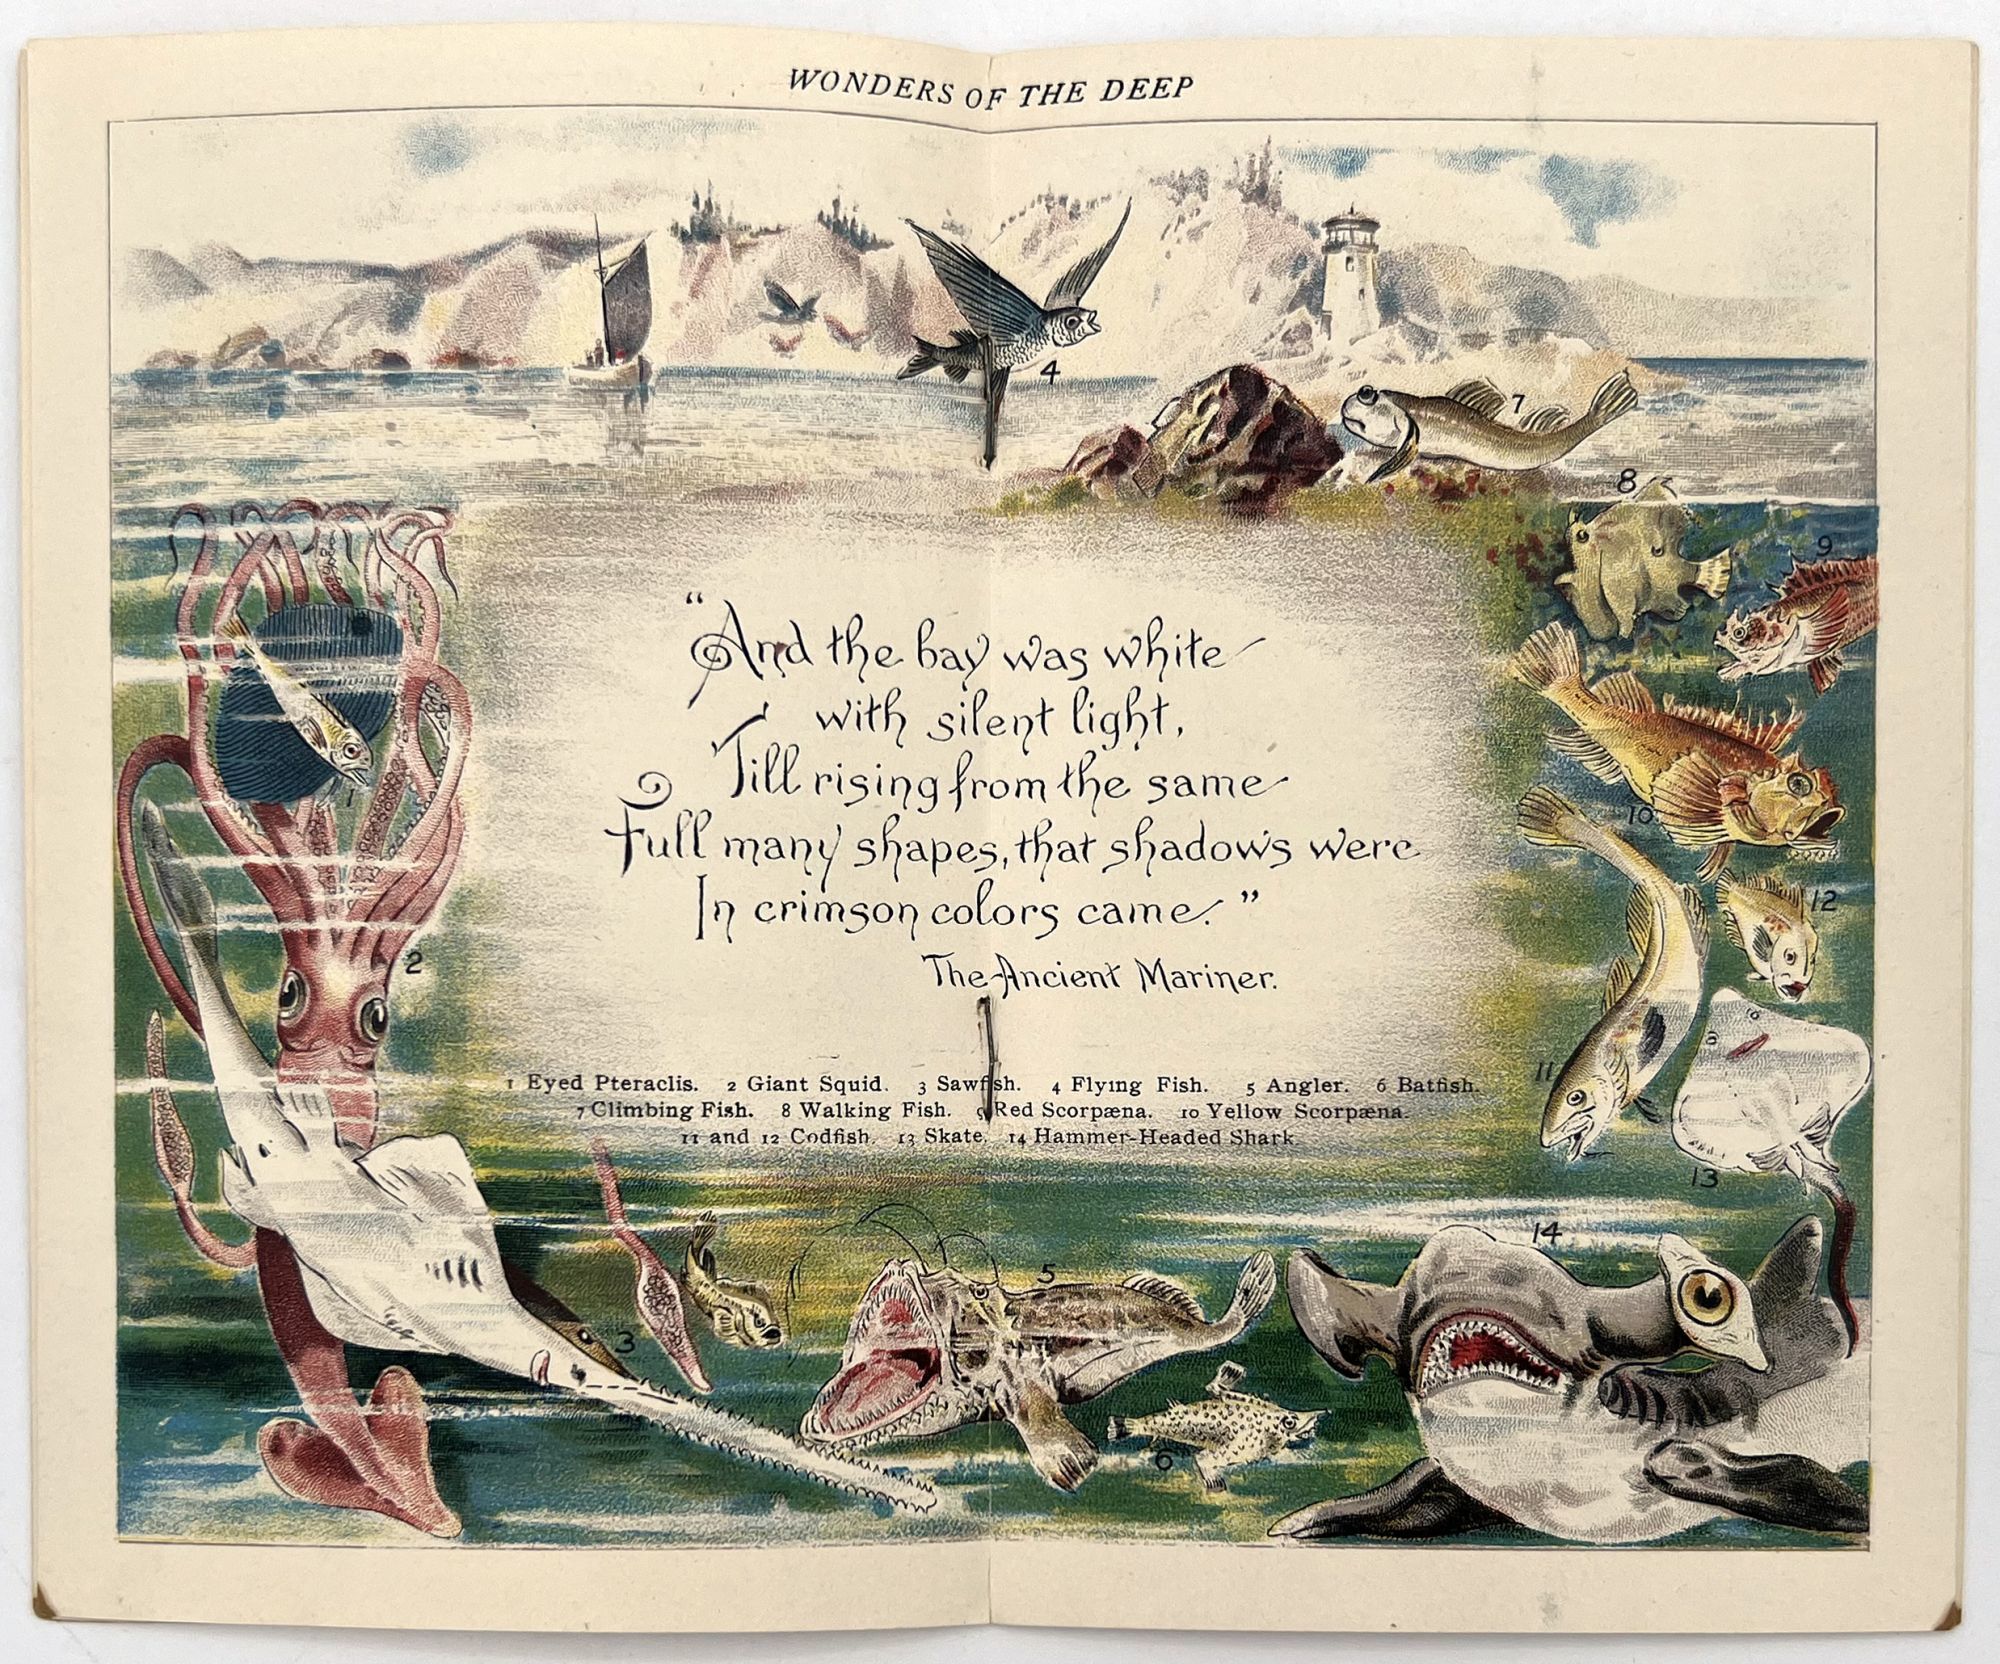 WONDERS OF THE DEEP
4
7
8
9
"And the bay was white
with silent light,
Till rising from the same
Full many shapes, that shadows were
In crimson colors came."
The Ancient Mariner.
1
10
12
2
11
1 Eyed Pteraclis. 2 Giant Squid. 3 Sawfish. 4 Flying Fish. 5 Angler. 6 Batfish.
7 Climbing Fish. 8 Walking Fish. 9 Red Scorpæna. 10 Yellow Scorpæna.
11 and 12 Codfish. 13 Skate. 14 Hammer-Headed Shark
13
14
5
3
6